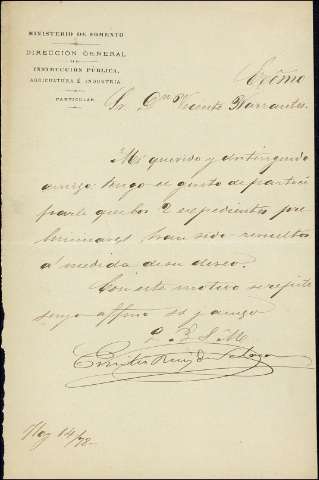 MINISTERIO DE FOMENTO
DIRECCIÓN GENERAL
DE
INSTRUCCIÓN PÚBLICA,
AGRICULTURA É INDUSTRIA
PARTICULAR
Excmo
Sr. Dn Vicente Barrantes.
Mi querido y distinguido
amigo: tengo el gusto de partici
parle que los 2 expedientes pre
liminares han sido resueltos
á medida de su deseo.
Con este motivo se repite
suyo affmo ss y amigo
Q. B. S. M
Emilio Ruiz de Salazar
May 14/78